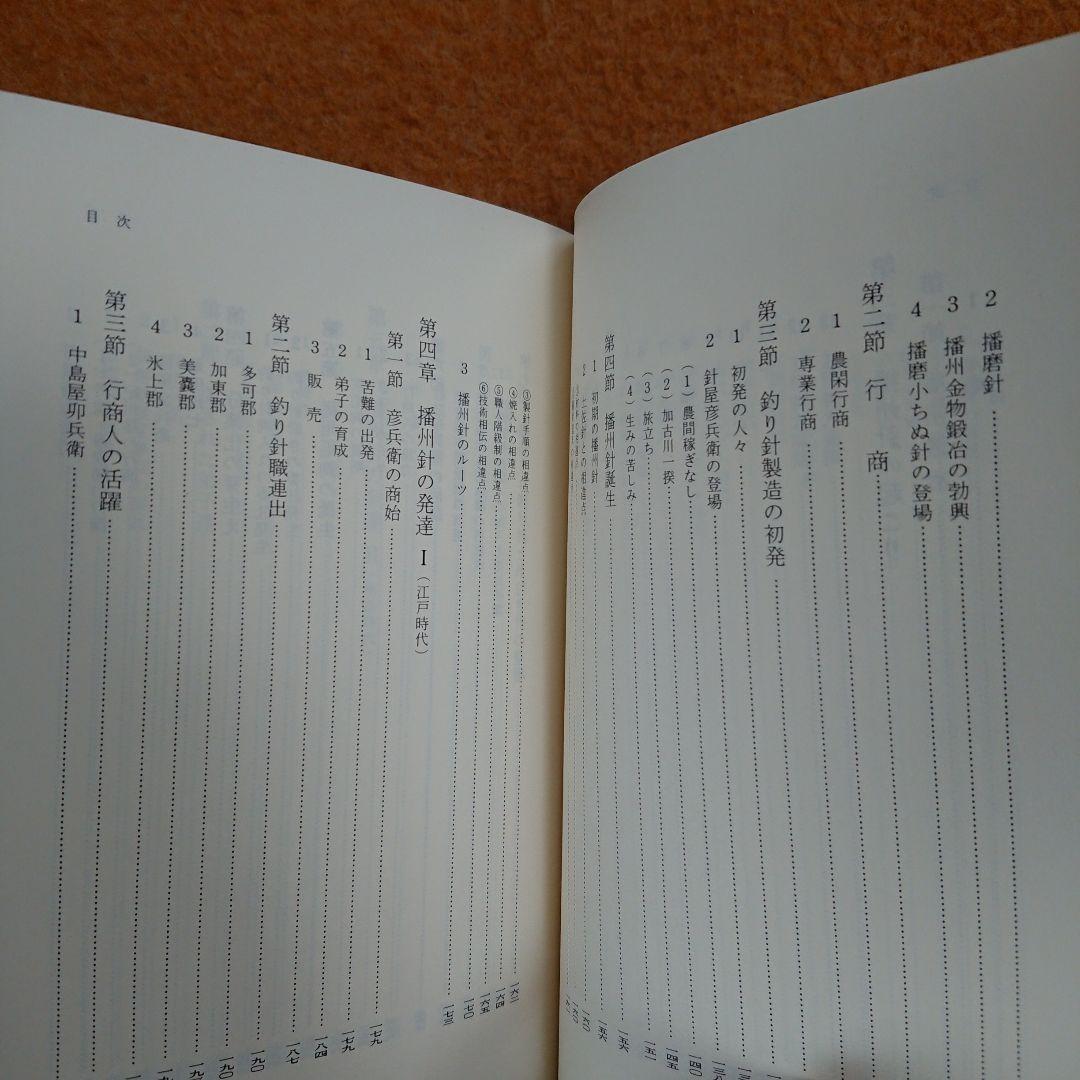 2 播磨針
3 播州金物鍛冶の勃興
4 播磨小ちぬ針の登場
第二節 行商
1 農閑行商
2 専業行商
第三節 釣り針製造の初発
1 初発の人々
2 針屋彦兵衛の登場
(1)農間稼ぎなし 一四〇
(2)加古川一揆 一四五
(3)旅立ち 一五一
(4)生みの苦しみ 一五六
第四節 播州針誕生 一五六
1 初期の播州針 一六〇
2 土佐針との相違点
③製針手順の相違点 一六二
④焼入れの相違点 一六四
⑤職人階級制の相違点 一六五
⑥技術相伝の相違点 一七〇
3 播州針のルーツ 一七三
第四章 播州針の発達 I(江戸時代)
第一節 彦兵衛の商始 一七九
1 苦難の出発 一七九
2 弟子の育成 一八四
3 販売 一八七
第二節 釣り針職連出 一九〇
1 多可郡 一九〇
2 加東郡
3 美嚢郡
4 氷上郡
第三節 行商人の活躍
1 中島屋卯兵衛
目次